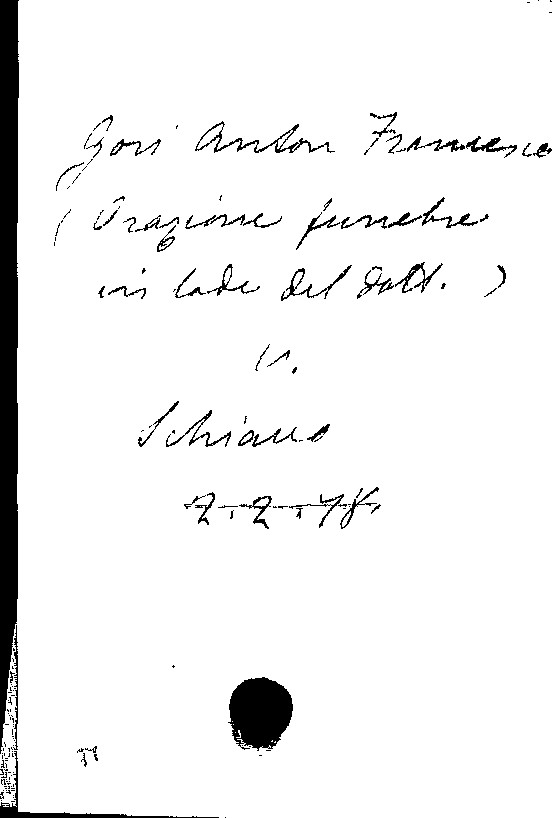 Gori Anton Francesco
(Orazione funebre
in lode del dott.)
v.
Schiavo
2.2.78.